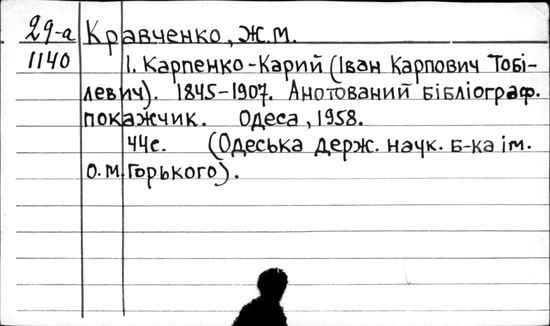 29-а Кравченко, Ж.М.
1140 І. Карпенко-Карий (Іван Карпович Тобі-
левич). 1845-1907. Анотований бібліограф.
покажчик. Одеса, 1958.
44с. (Одеська держ. наук. б-ка ім.
О.М.Горького).